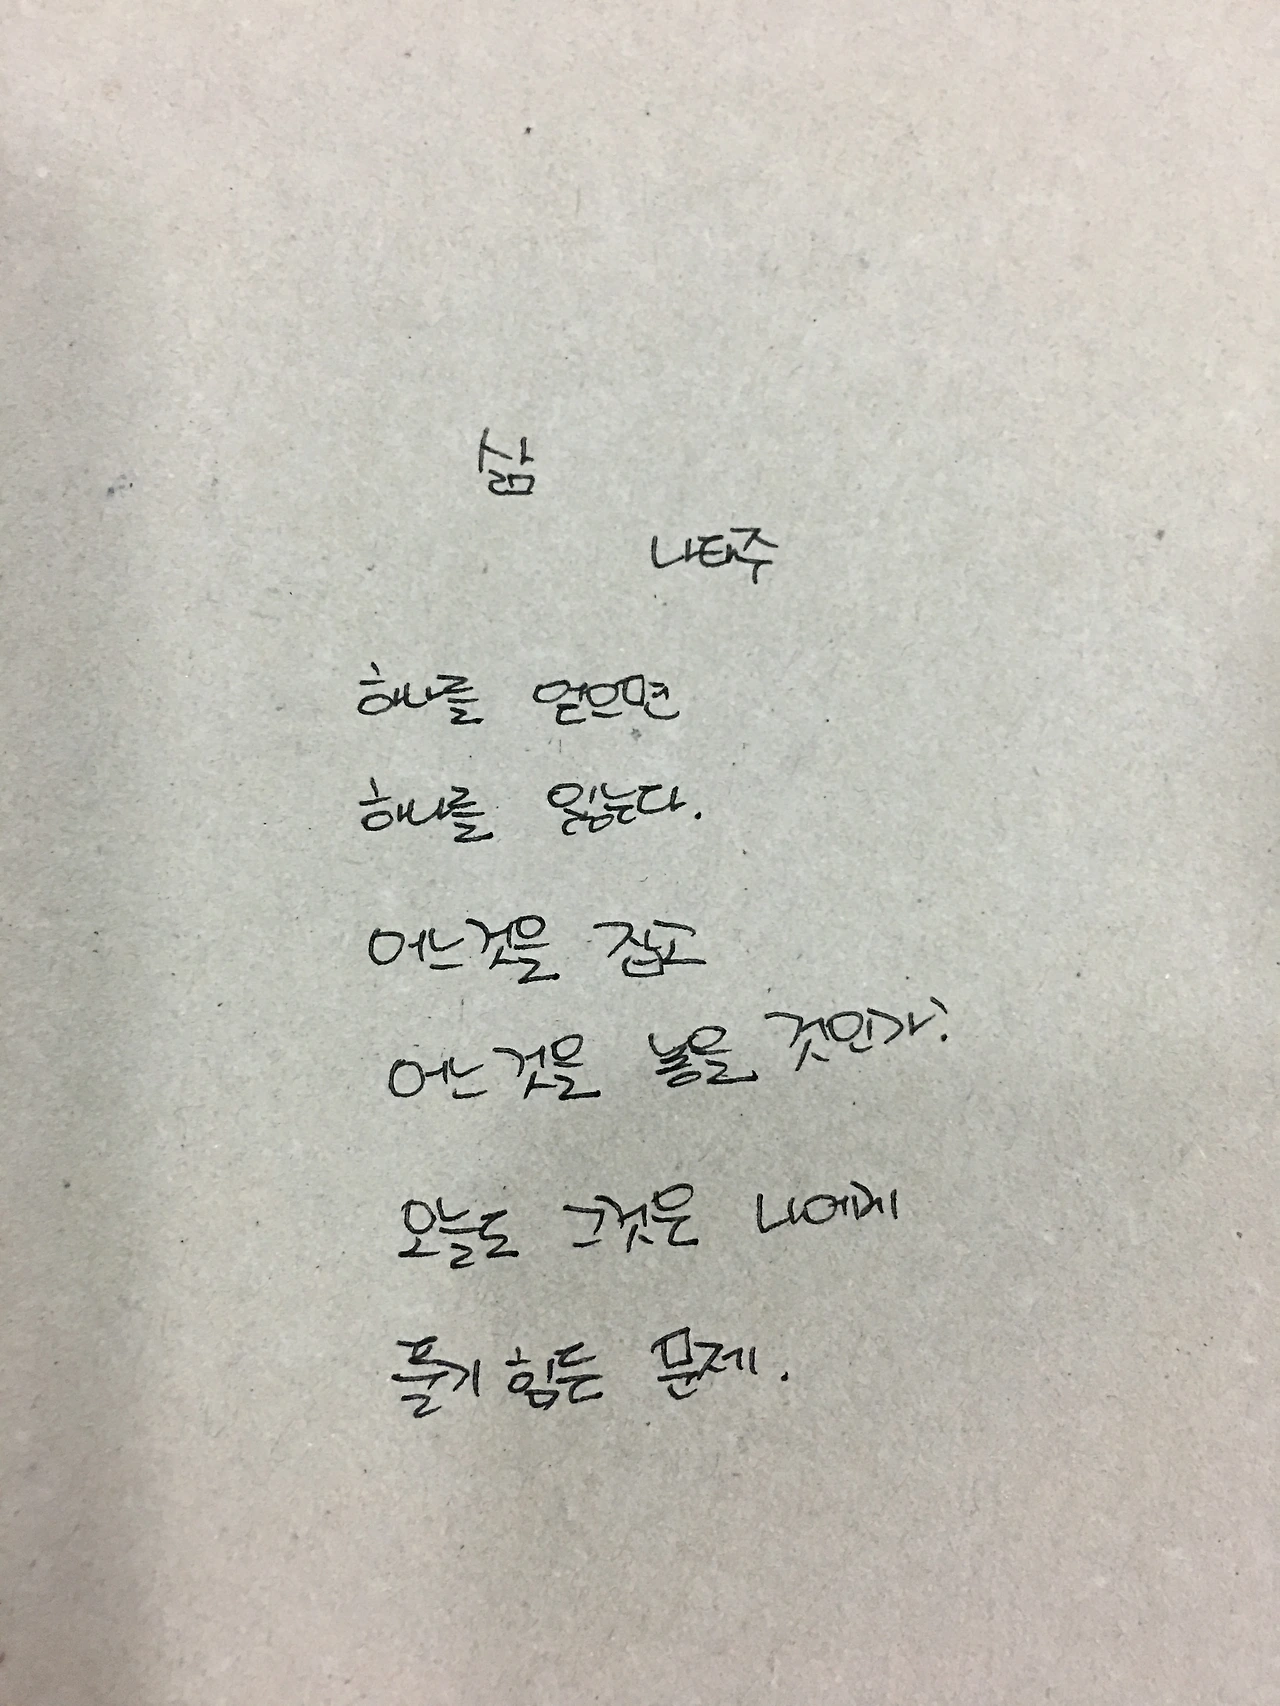 삶
나태주
하나를 얻으면
하나를 잃는다.
어느것을 잡고
어느것을 놓을 것인가?
오늘도 그것은 나에게
풀기 힘든 문제.